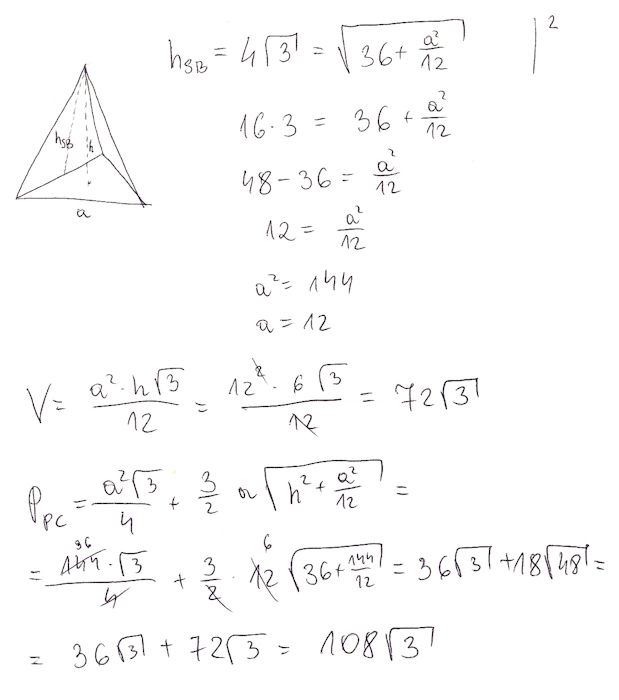 h_SB = 4√3 = √(36 + a²/12) |²
16·3 = 36 + a²/12
48 - 36 = a²/12
12 = a²/12
a² = 144
a = 12
h_SB h
a
V = a²·h√3/12 = 12²·6√3/12 = 72√3
P_PC = a²√3/4 + 3/2 a √(h² + a²/12) =
= 144 36·√3/4 + 3/2 · 12 6 √(36 + 144/12) = 36√3 + 18√48 =
= 36√3 + 72√3 = 108√3